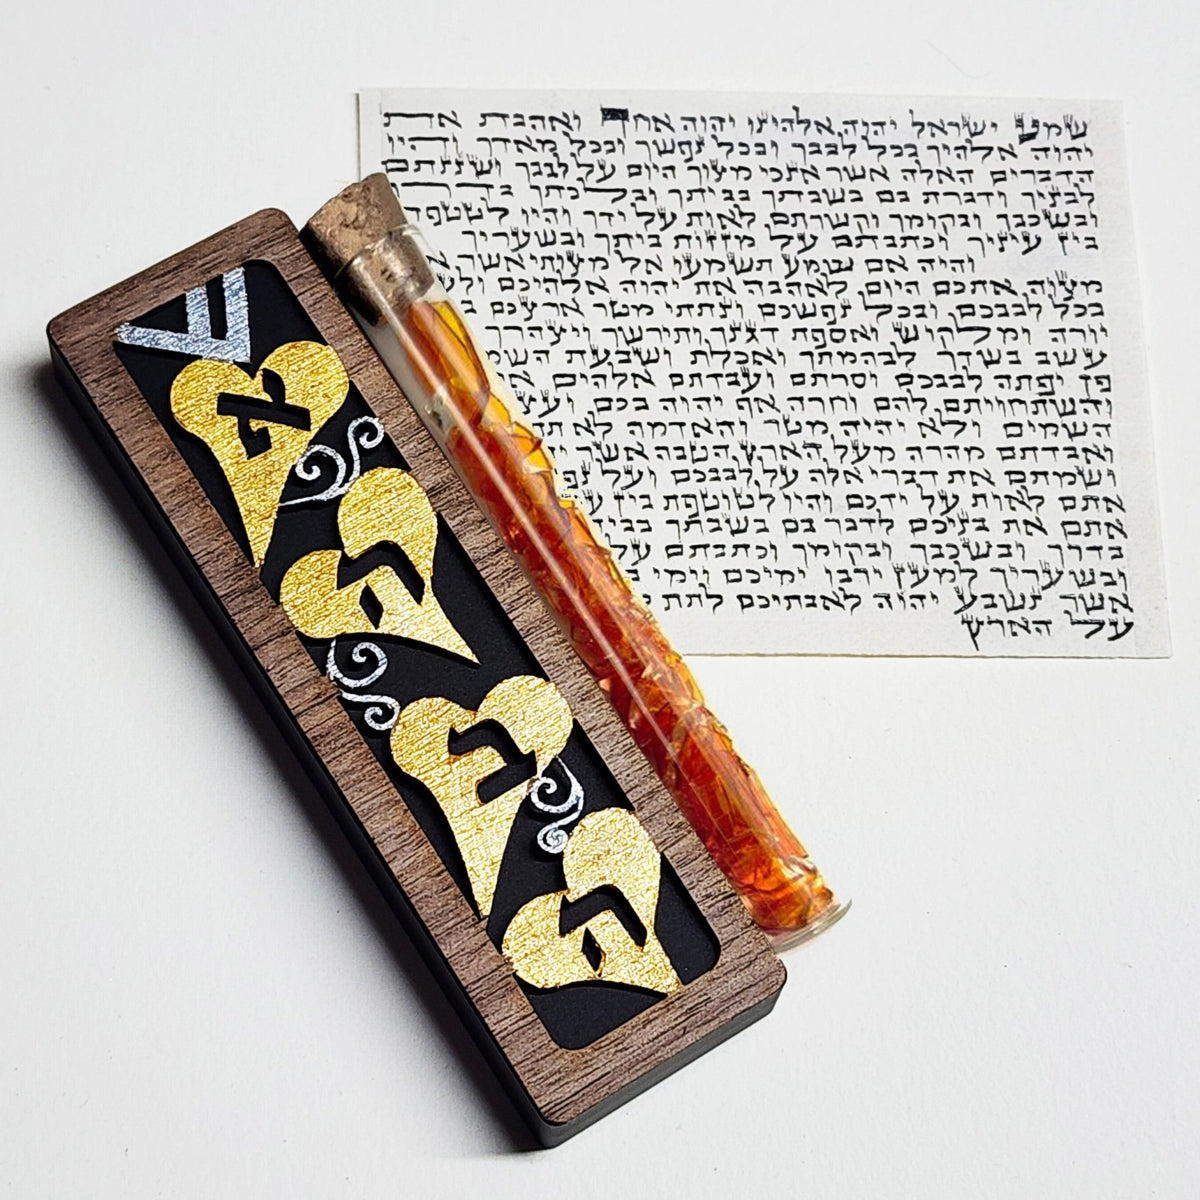 ש
אהבה
שמע ישראל יהוה אלהינו יהוה אחד ואהבת את
יהוה אלהיך בכל לבבך ובכל נפשך ובכל מאדך והיו
הדברים האלה אשר אנכי מצוך היום על לבבך ושננתם
לבניך ודברת בם בשבתך בביתך ובלכתך בדרך
ובשכבך ובקומך וקשרתם לאות על ידך והיו לטטפת
בין עיניך וכתבתם על מזזות ביתך ובשעריך
והיה אם שמע תשמעו אל מצותי אשר
מצוה אתכם היום לאהבה את יהוה אלהיכם
בכל לבבכם ובכל נפשכם ונתתי מטר ארצכם
יורה ומלקוש ואספת דגנך ותירשך ויצהרך
עשב בשדך לבהמתך ואכלת ושבעת
פן יפתה לבבכם וסרתם ועבדתם אלהים
והשתחויתם להם וחרה אף יהוה בכם
השמים ולא יהיה מטר והאדמה לא
ואבדתם מהרה מעל הארץ הטבה אשר
ושמתם את דברי אלה על לבבכם ועל
אתם לאות על ידכם והיו לטוטפת בין
אתם את בניכם לדבר בם בשבתך
בדרך ובשכבך ובקומך וכתבתם על
ובשעריך למען ירבו ימיכם וימי
אשר נשבע יהוה לאבתיכם לתת
על הארץ